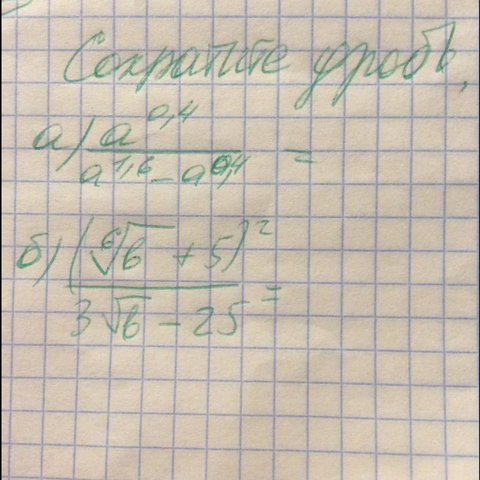 Сократите дробь,
а) a^0,4 / (a^1,6 - a^0,4) =
б) (⁶√b + 5)² / (³√b - 25) =